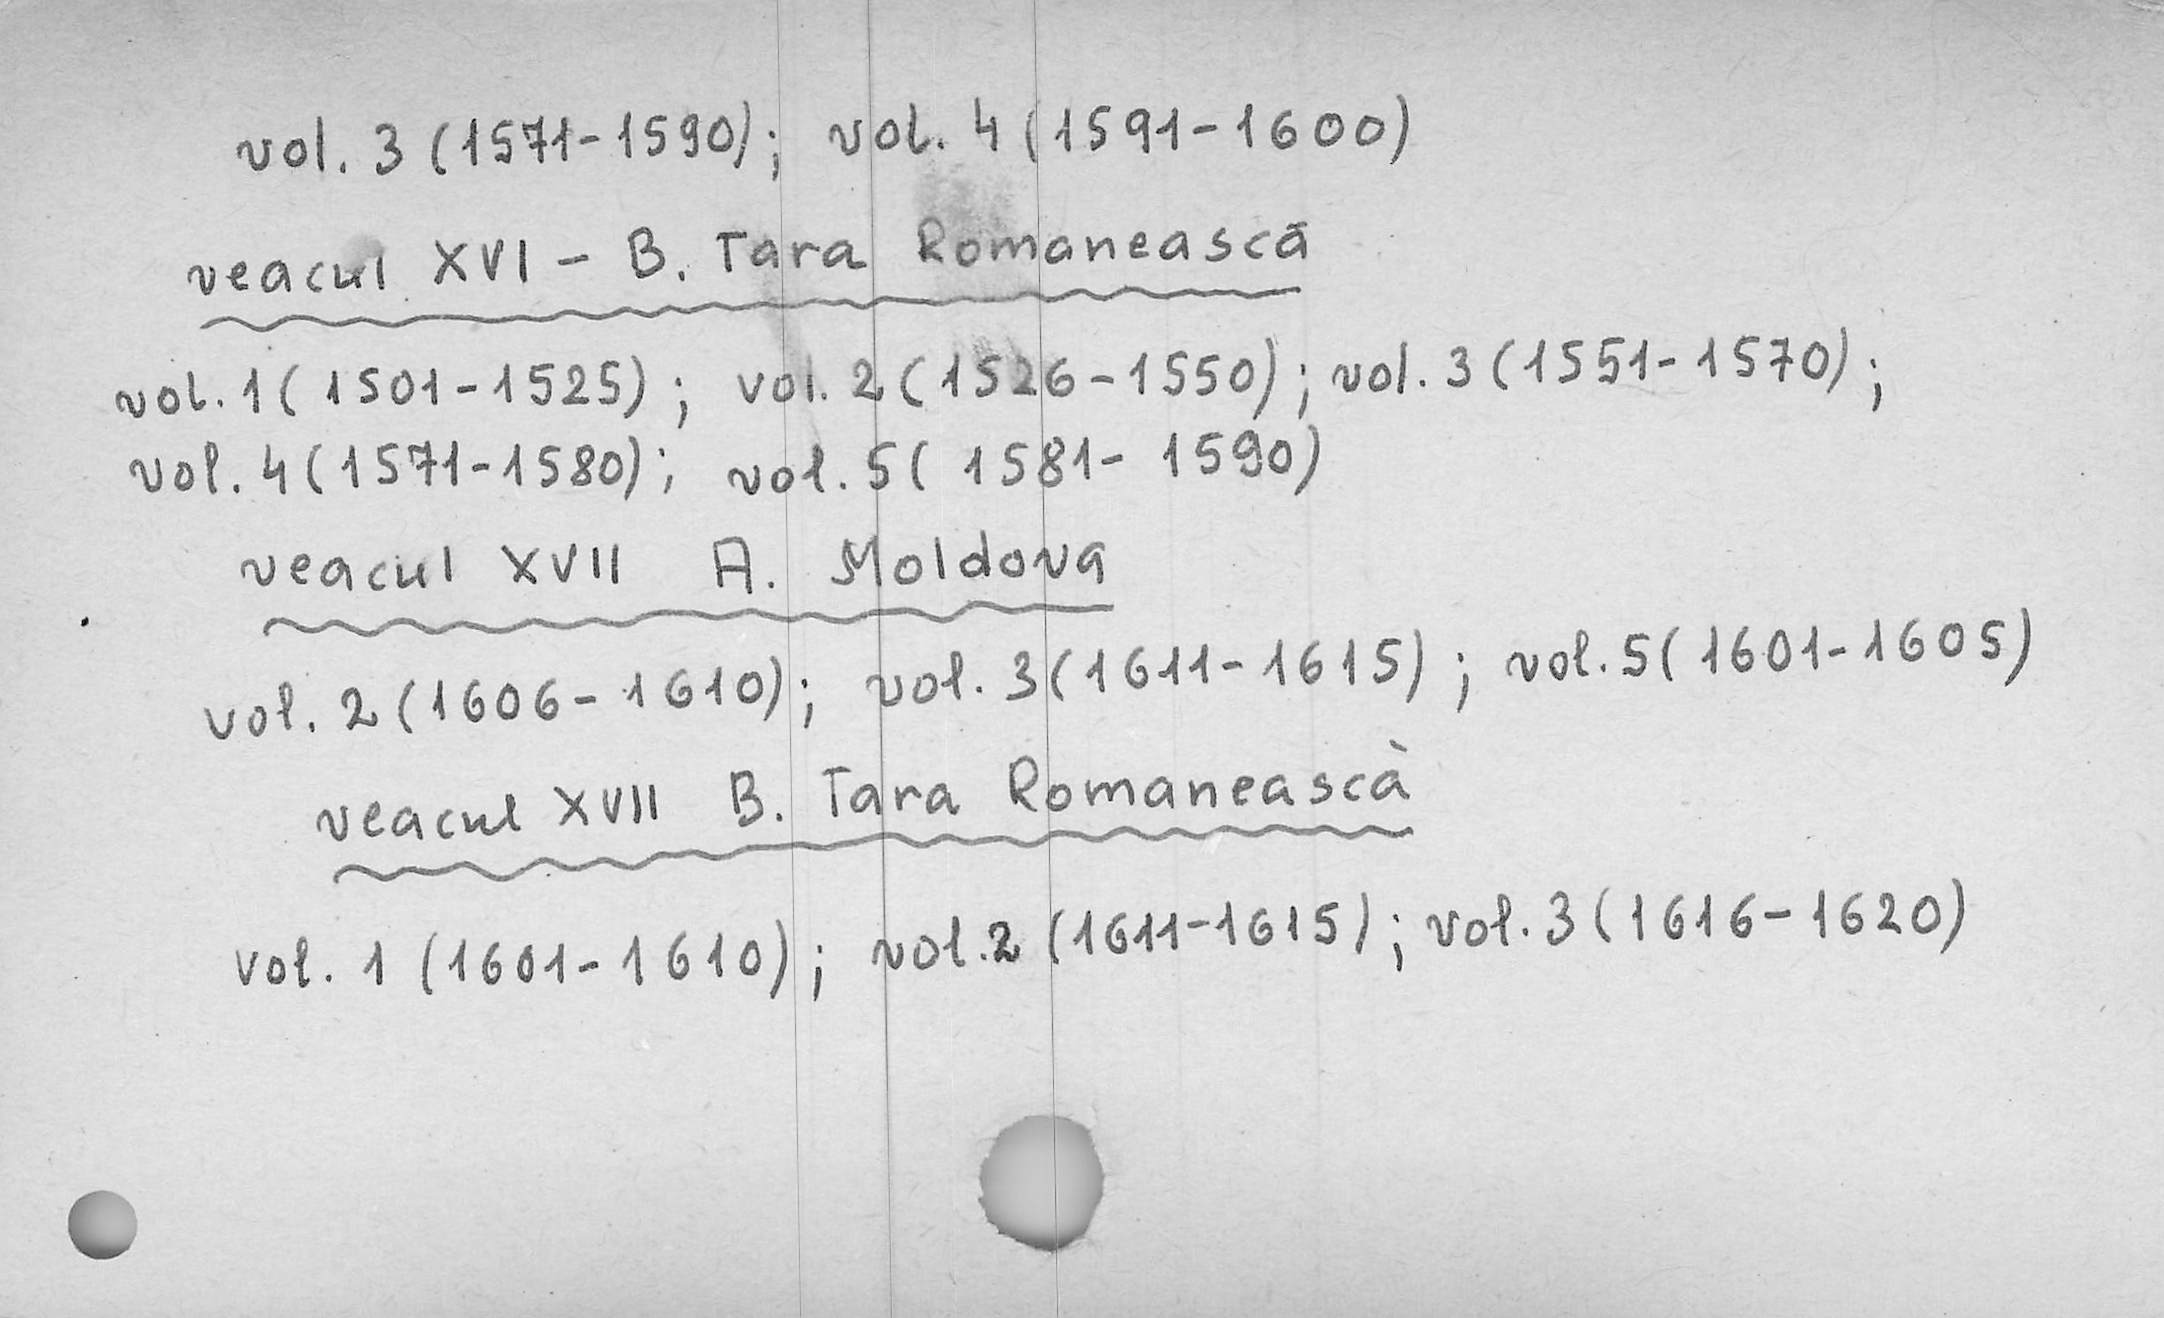 vol. 3 (1571-1590); vol. 4 (1591-1600)
veacul XVI - B. Tara Romanească
vol. 1 (1501-1525); vol. 2 (1526-1550); vol. 3 (1551-1570);
vol. 4 (1571-1580); vol. 5 (1581-1590)
veacul XVII A. Moldova
vol. 2 (1606-1610); vol. 3 (1611-1615); vol. 5 (1601-1605)
veacul XVII B. Tara Romaneascà
vol. 1 (1601-1610); vol. 2 (1611-1615); vol. 3 (1616-1620)